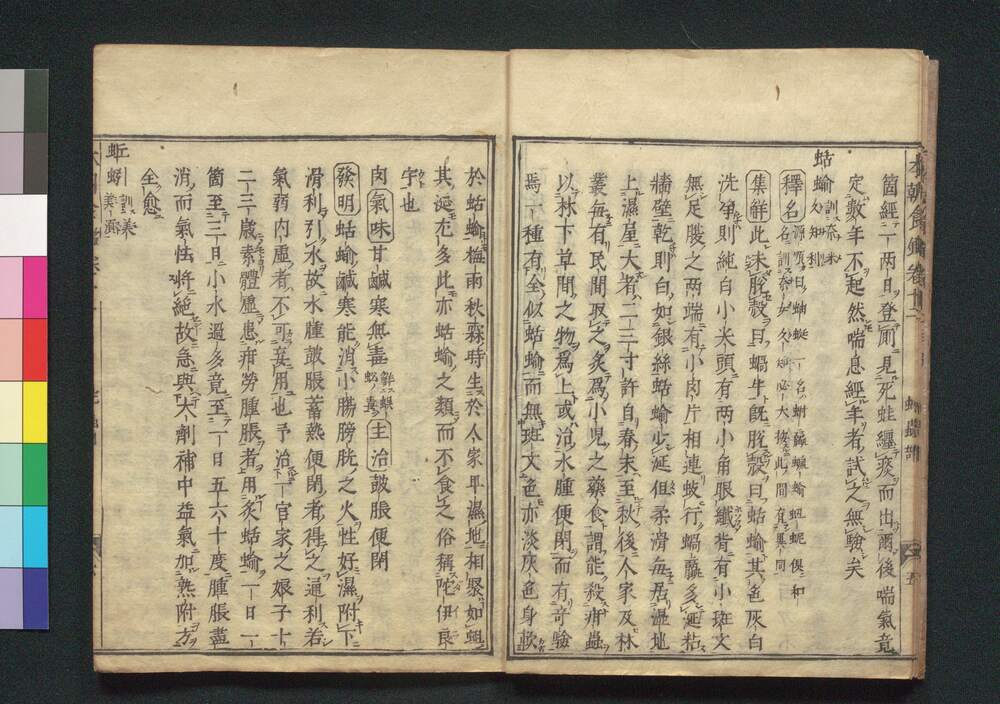 箇經一兩日登厠見死蛙纏痰而出爾後喘氣竟
定數年不起然喘息經年者試之無驗矣
蛞蝓
集解此未脫殼且蝸牛既脫殼曰蛞蝓其色灰白
洗淨則純白小米頭有兩小角眼纖背有小斑文
無足腹之兩端有小肉片相連蚑行蝸蠃多涎粘
牆壁乾則白如銀絲蛞蝓少涎但柔滑每居濕地
上濕屋大者二三寸許自春末至秋後人家及林
叢每有民間取之炙爲小兒之藥食謂能殺疳蟲
以林下草間之物爲上或治水腫便閉而有奇驗
焉一種有全似蛞蝓而無斑文色亦淡灰色身軟
於蛞蝓梅雨秋霖時生於人家卑濕地相聚如蛆
其涎尤多此亦蛞蝓之類而不食之俗稱陀伊良
宇也
肉氣味甘鹹寒無毒主治皷脹便閉
發明蛞蝓鹹寒能消小腸膀胱之火性好濕附下
滑利引水故水腫皷脹蓄熱便閉者得之通利若
氣弱内虛者不可妄用也予治一官家之娘子十
二三歲素體虛患疳勞腫脹者用炙蛞蝓一日一
箇至二三日小水過多竟至一日五六十度腫脹盡
消而氣怯將絕故急與大劑補中益氣加熟附方
全愈
蚯蚓